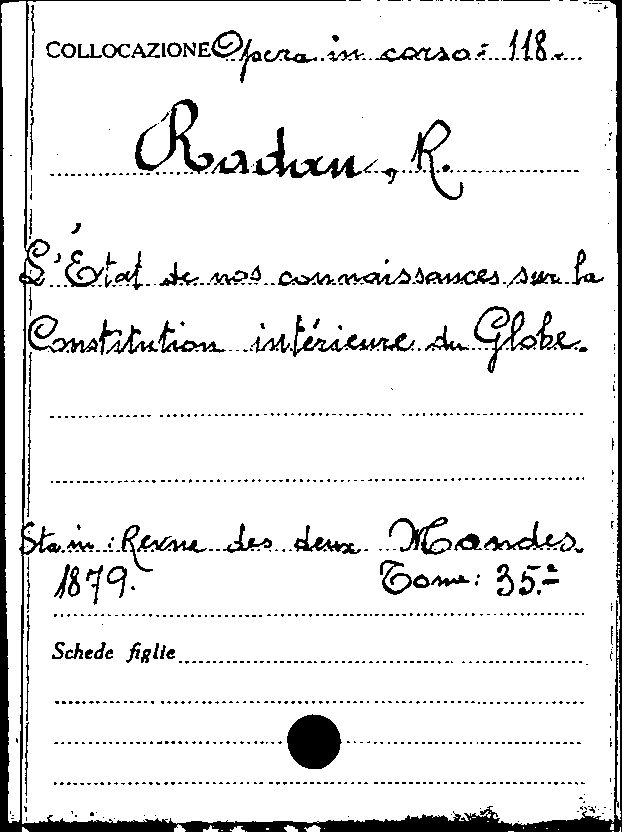 COLLOCAZIONE Opera in corso: 118.
Radau, R.
L'État de nos connaissances sur la
Constitution intérieure du Globe.
Sta in: Revue des deux Mondes
1879. Tome: 35.º
Schede figlie